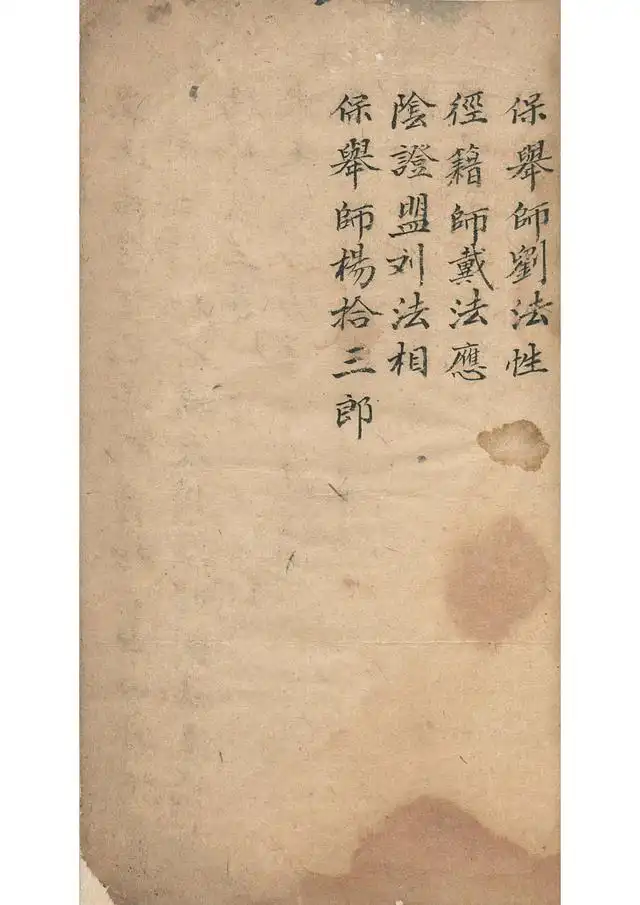 保舉師劉法性
徑籍師戴法應
陰證盟刘法相
保舉師楊拾三郎